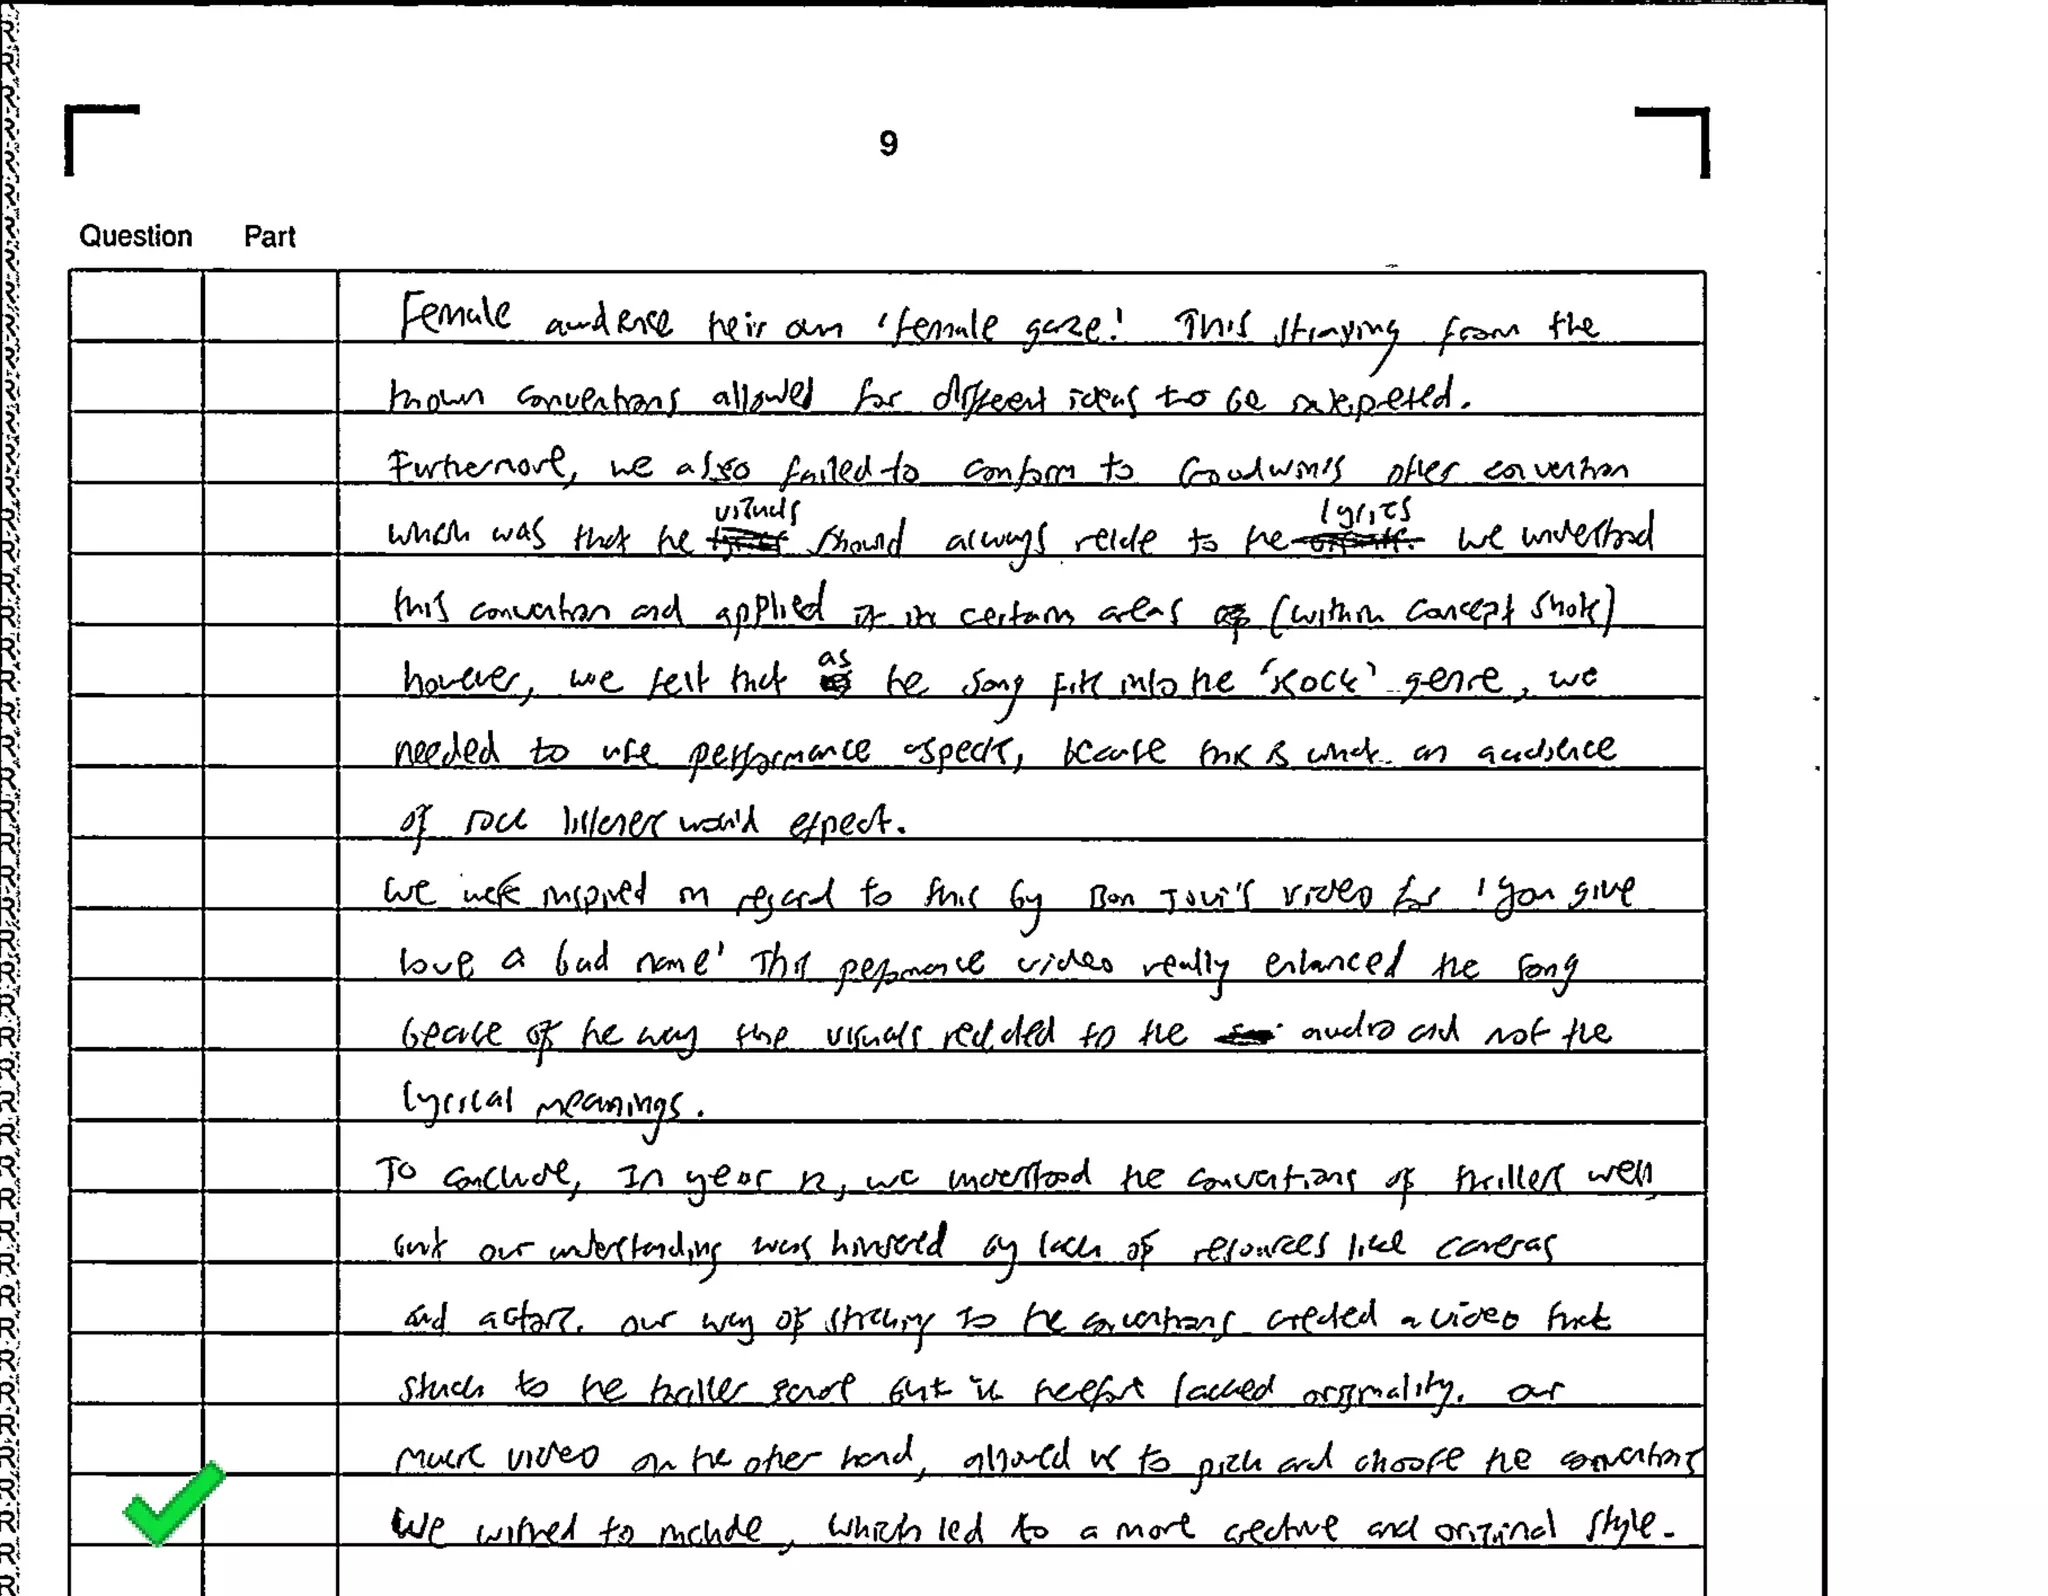 9
Question Part
Female audience their own 'female gaze'. This straying from the
known conventions allowed for different ideas to be interpreted.
Furthermore, we also failed to conform to Goodwin's other convention
which was that the visuals should always relate to the lyrics we understood
this convention and applied it in certain areas (within concept shots)
however, we felt that as the song fits into the 'Rock' genre, we
needed to use performance aspects, because this is what an audience
of rock listeners would expect.
We were inspired in regard to this by Bon Jovi's video for 'You give
love a bad name' This performance video really enhanced the song
because of the way the visuals related to the audio and not the
lyrical meanings.
To conclude, In year 12, we understood the conventions of thrillers well,
but our understanding was hindered by lack of resources like cameras
and actors. our way of sticking to the conventions created a video that
stuck to the thriller genre but it therefore lacked originality. our
music video on the other hand, allowed us to pick and choose the conventions
We wished to include, which led to a more creative and original style.